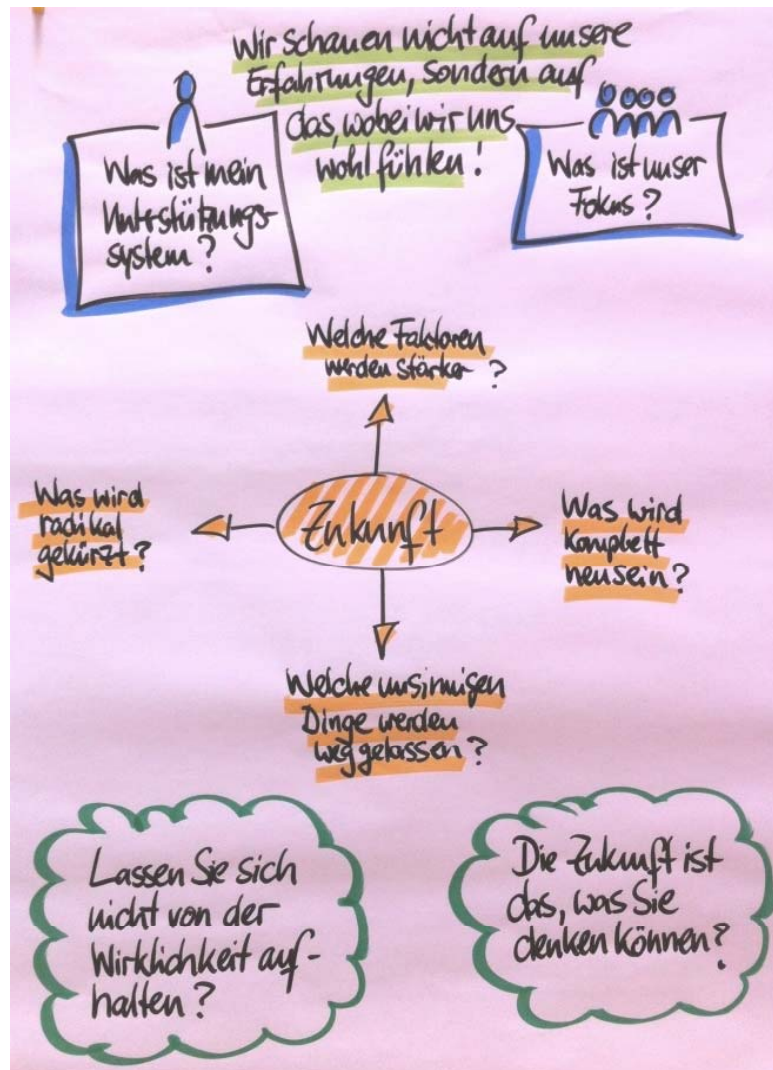 Wir schauen nicht auf unsere
Erfahrungen, sondern auf
das, wobei wir uns
wohl fühlen!
Was ist mein
Unterstützungs-
system?
Was ist unser
Fokus?
Welche Faktoren
werden stärker ?
Was wird
radikal
gekürzt?
Zukunft
Was wird
komplett
neu sein?
Welche unsinnigen
Dinge werden
weg gelassen?
Lassen Sie sich
nicht von der
Wirklichkeit auf-
halten?
Die Zukunft ist
das, was Sie
denken können?